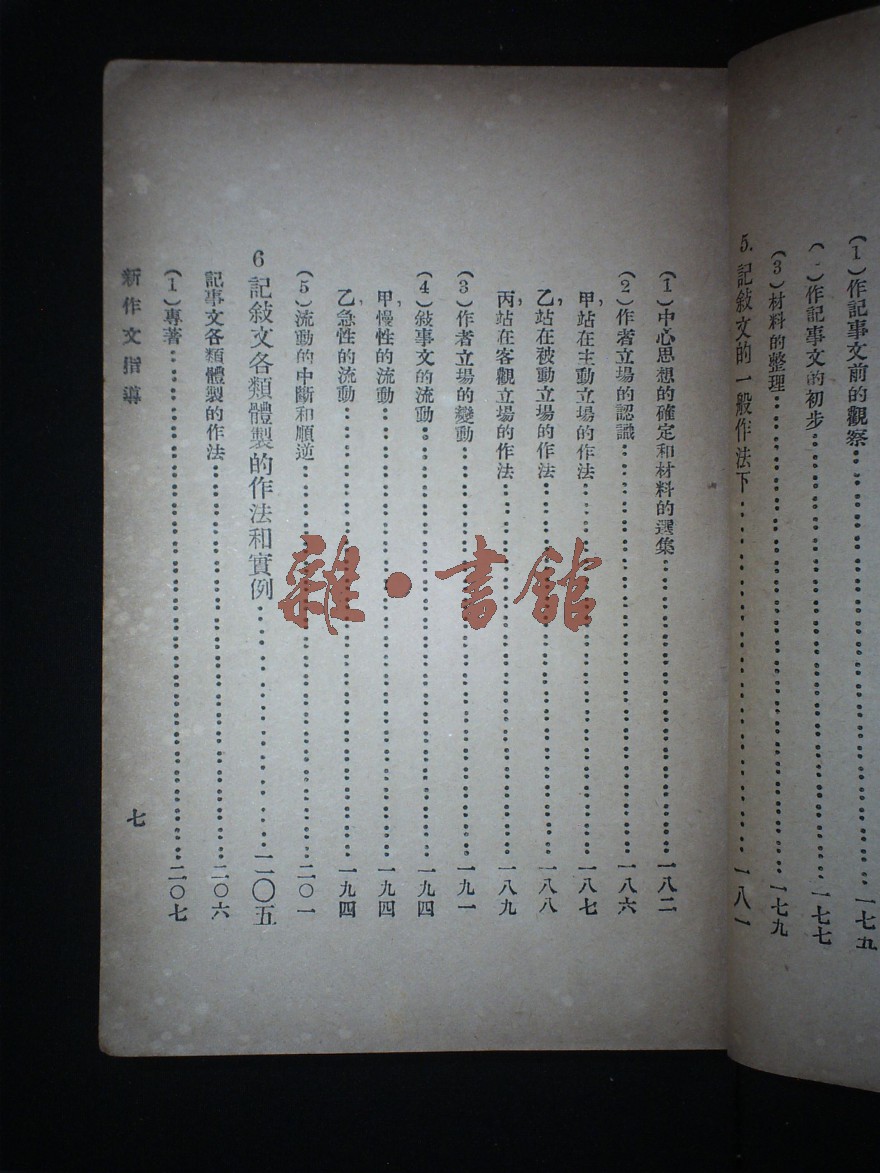 (1)作記事文前的觀察……一七五
()作記事文的初步……一七七
(3)材料的整理……一七九
5.記敍文的一般作法下……一八一
(1)中心思想的確定和材料的選集……一八二
(2)作者立場的認識……一八六
甲,站在主動立場的作法……一八七
乙,站在被動立場的作法……一八八
丙,站在客觀立場的作法……一八九
(3)作者立場的變動……一九一
(4)敍事文的流動……一九四
甲,慢性的流動……一九四
乙,急性的流動……一九四
(5)流動的中斷和順逆……二〇一
6 記敍文各類體製的作法和實例……二〇五
記事文各類體製的作法……二〇六
(1)專著……二〇七
新作文指導
七
雜·書館